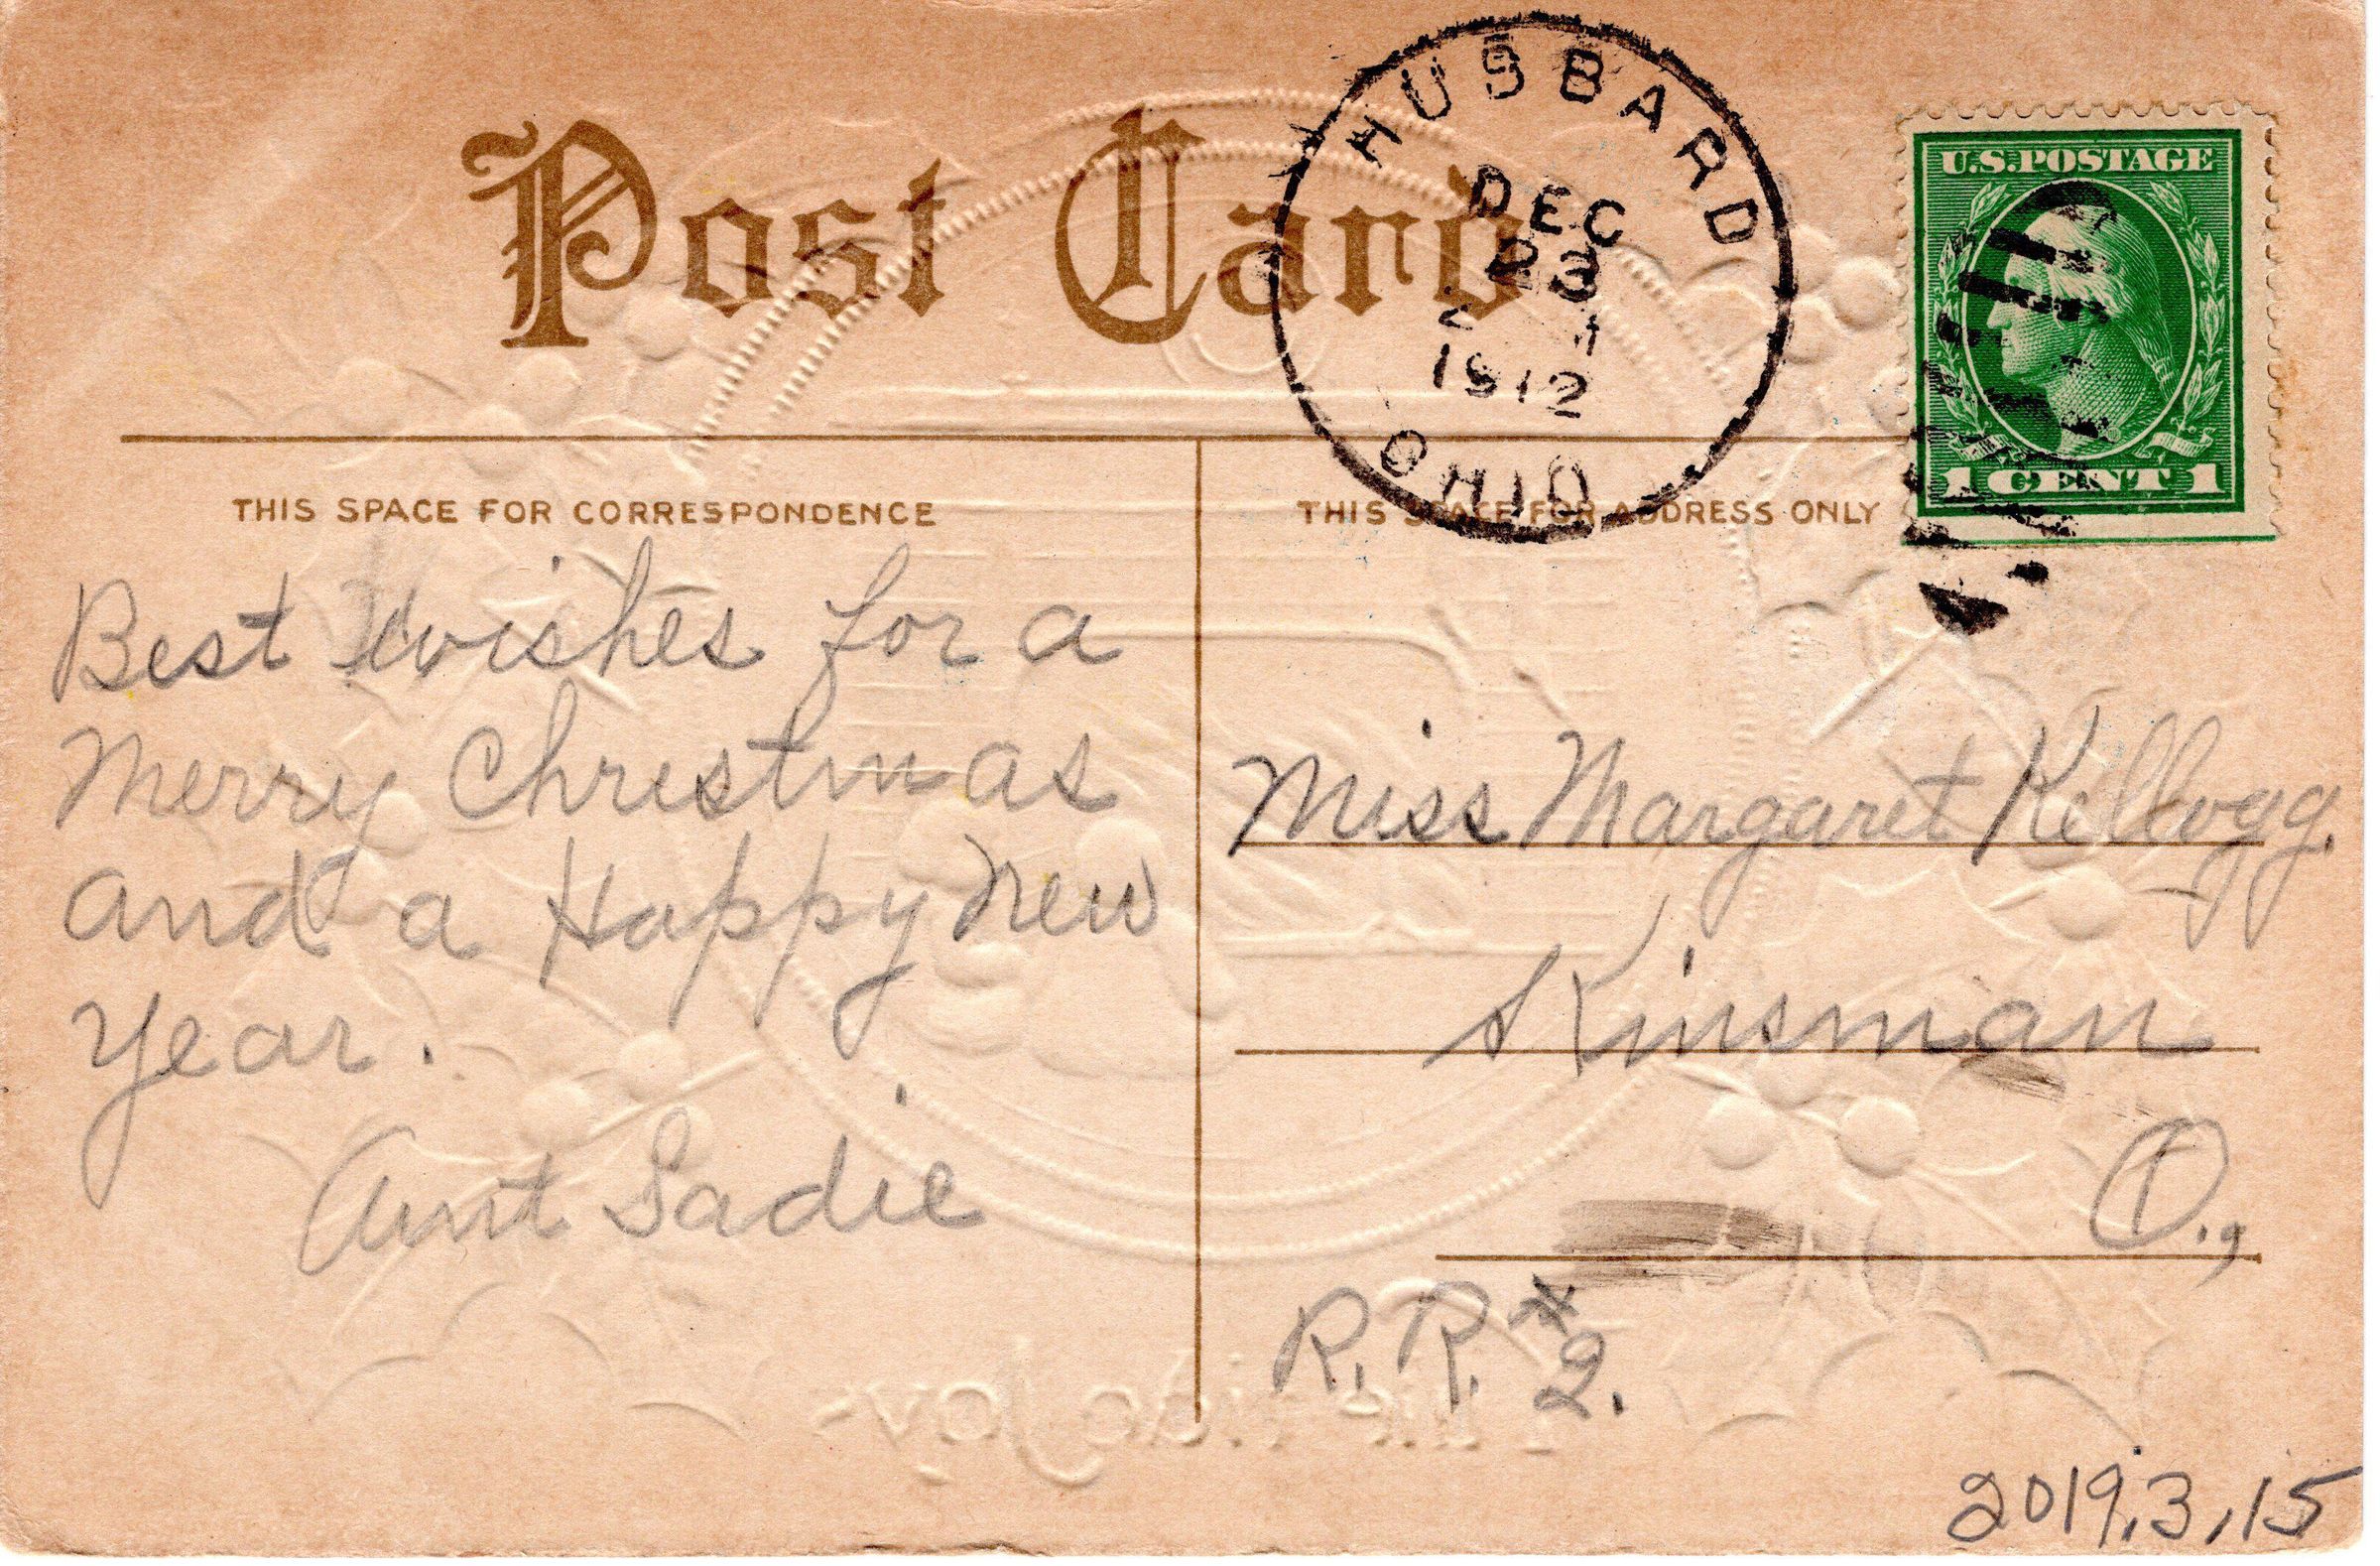 Post Card
HUBBARD
DEC
23
1912
OHIO
U.S. POSTAGE
1 CENT 1
THIS SPACE FOR CORRESPONDENCE
THIS SPACE FOR ADDRESS ONLY
Best Wishes for a
Merry Christmas
and a Happy New
Year.
Aunt Sadie
Miss Margaret Kellogg.
Kinsman
O.,
R.R. #2.
2019.3.15